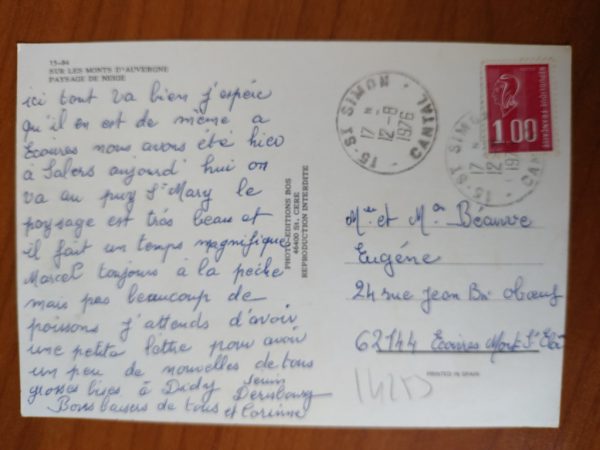 15-84
SUR LES MONTS D'AUVERGNE
PAYSAGE DE NEIGE
ici tout va bien j'espére
qu'il en est de même a
Ecoires nous avons été hier
à Salers aujourd'hui on
va au puy St Mary le
paysage est trés beau et
il fait un temps magnifique
Marcel toujours à la pêche
mais pas beaucoup de
poissons j'attends d'avoir
une petite lettre pour avoir
un peu de nouvelles de tous
grosses bises à Didy
Bons baisers de tous et Corinne
PHOTO-EDITIONS BOS
46400 St. CERE
REPRODUCTION INTERDITE
15-ST SIMON
17 H
12-8
1976
CANTAL
15-ST SIMON
17
12
197
CANT
1.00
et
Eugéne
24 rue Jean
62144
PRINTED IN SPAIN